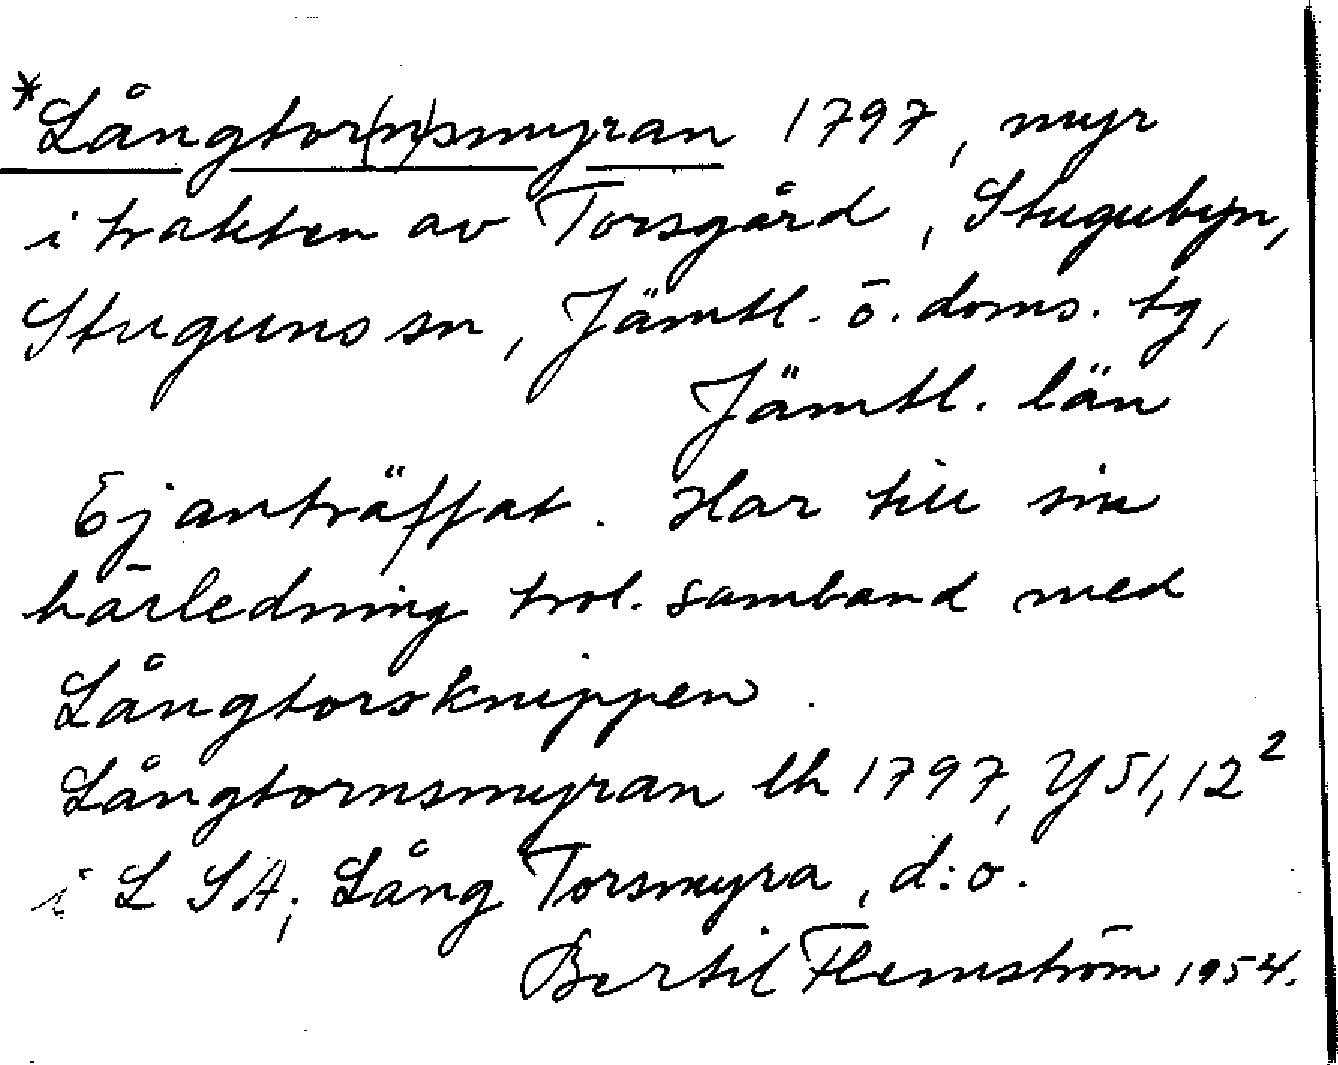 *Långtor(n)smyran 1797, myr
i trakten av Torsgård, Stugubyn,
Stuguns sn, Jämtl. ö. doms. tg,
Jämtl. län
Ej anträffat. Har till sin
härledning trol. samband med
Långtorsknippen.
Långtornsmyran lh 1797, Y51,12²
i LSA; Lång Torsmyra, d:o.
Bertil Flemström 1954.